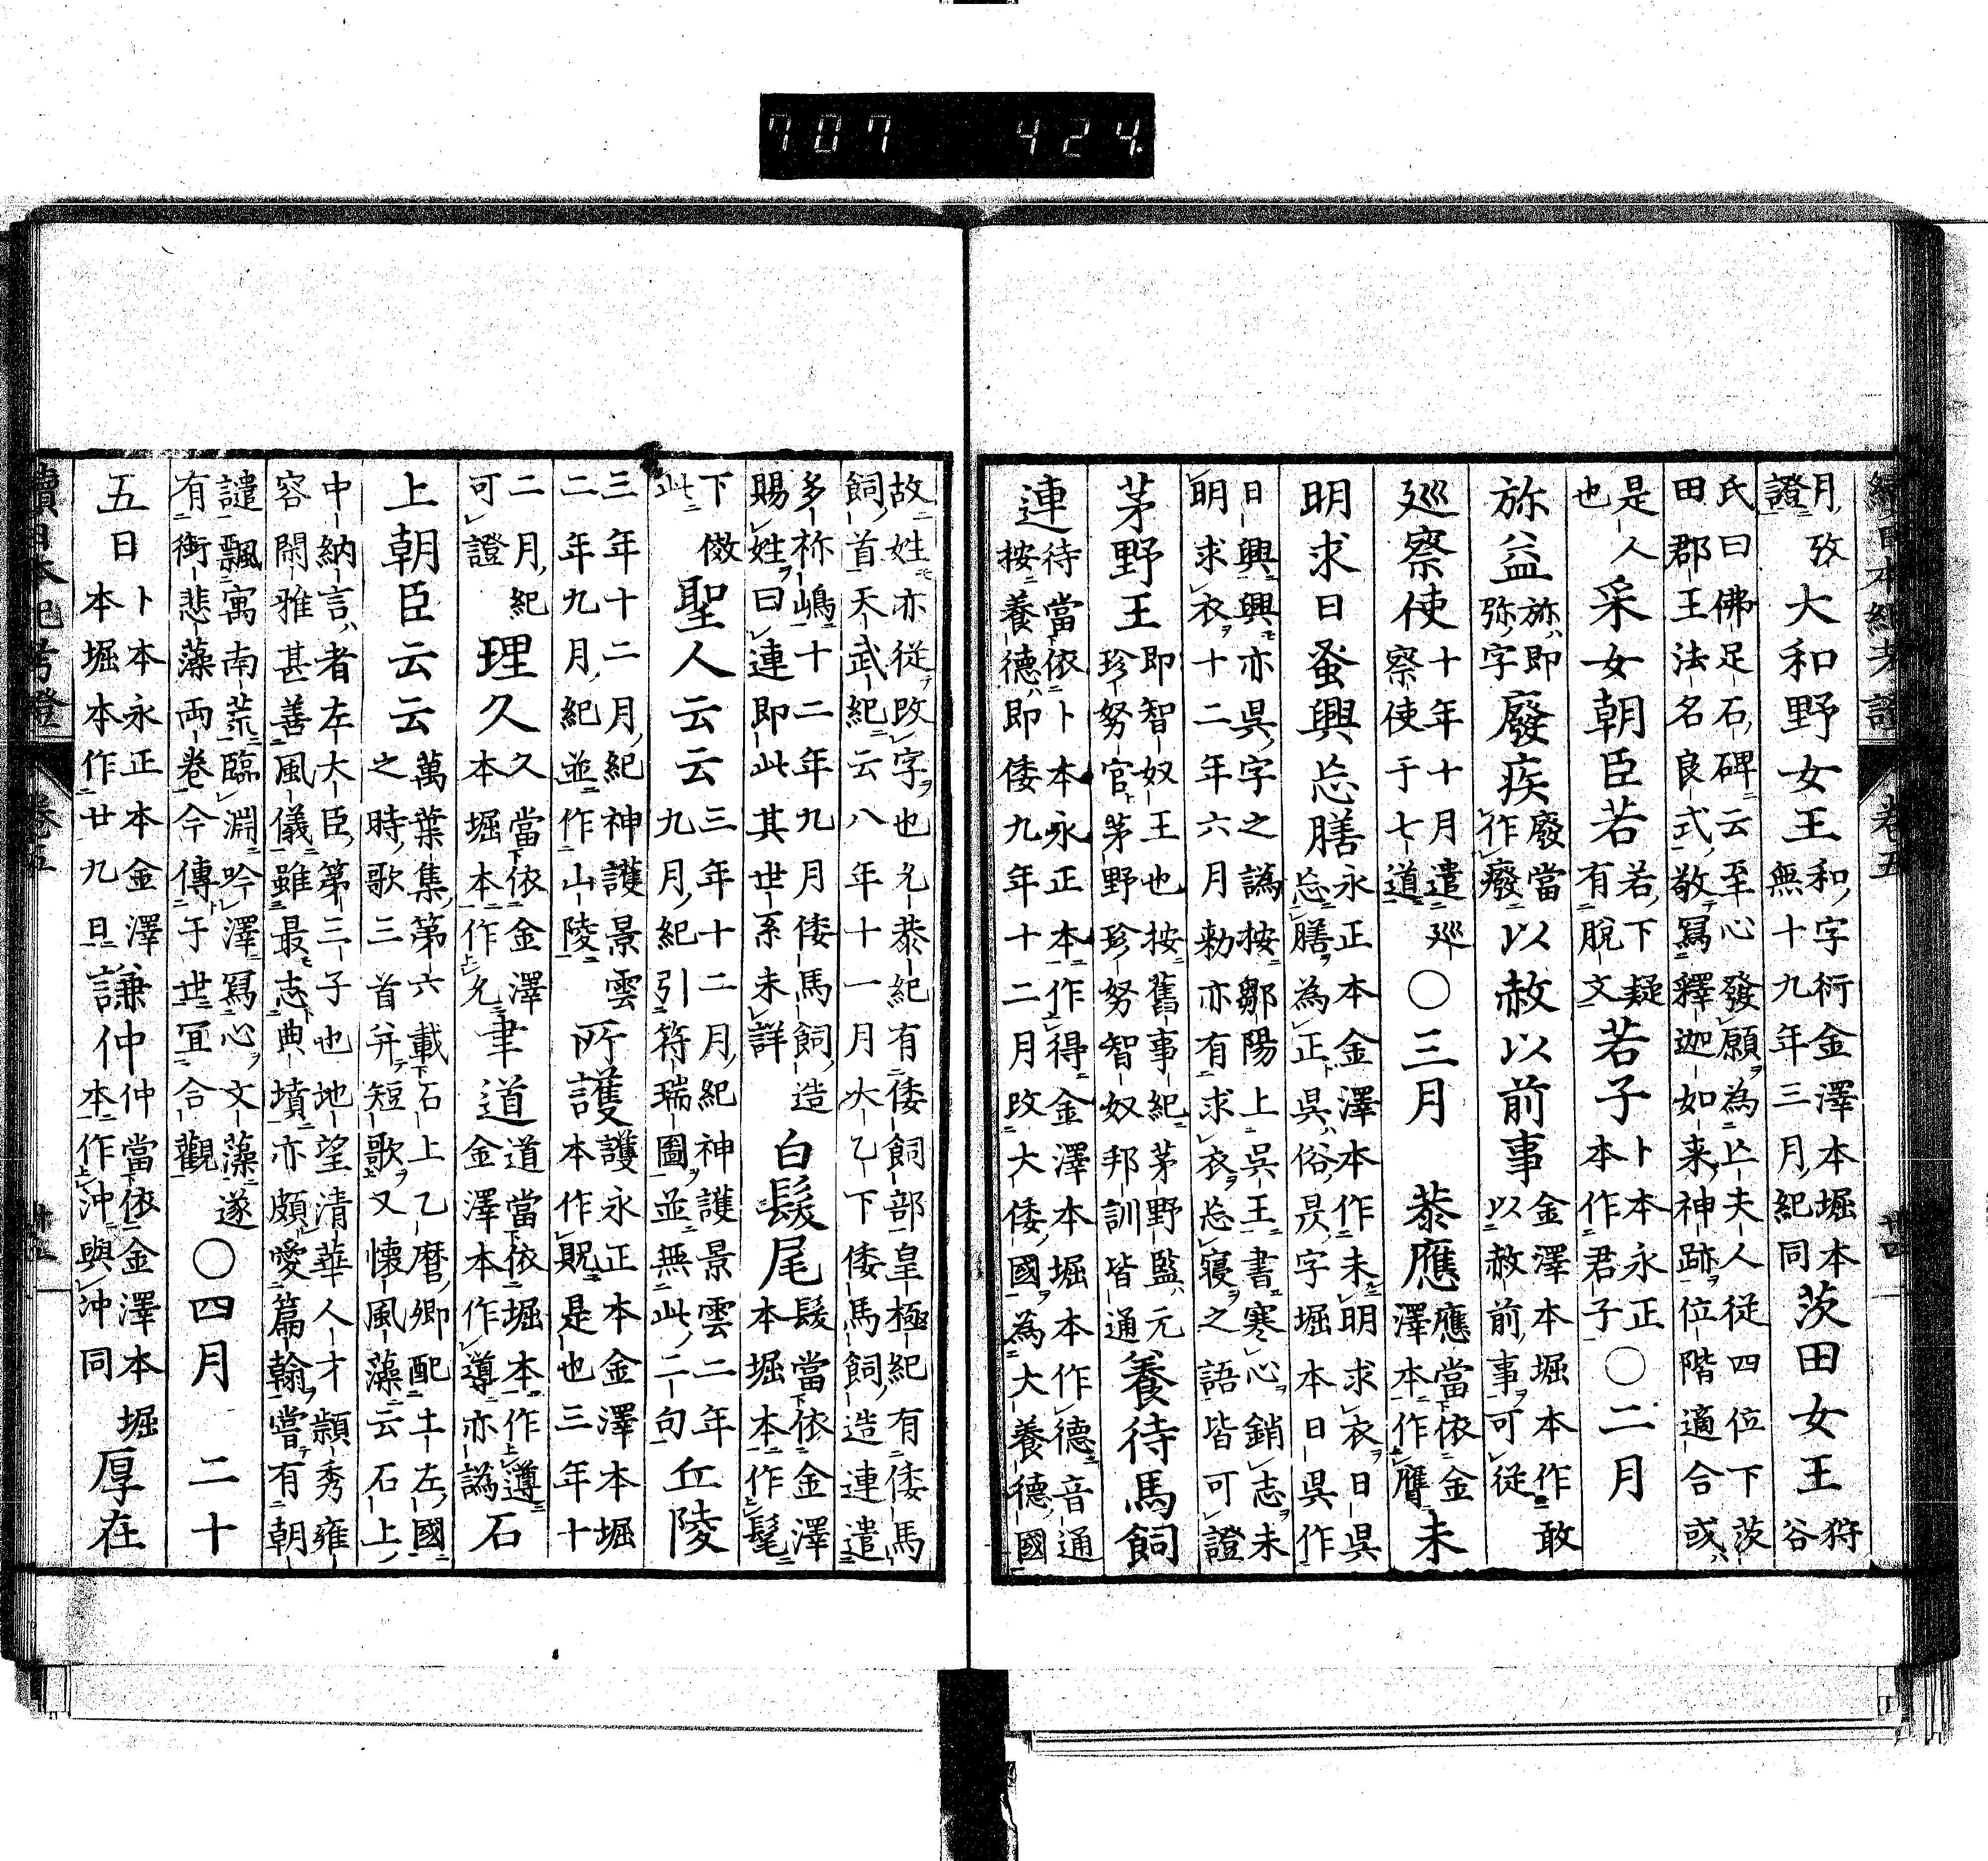 707 424.
續日本紀考證 卷五 廿四
月、攷證 大和野女王 和、字衍金澤本堀本無十九年三月、紀同 茨田女王 狩谷
氏曰佛足石、碑云至心發願為亡夫人從四位下茨田郡王法名良式、敬寫釋迦如来神跡位階適合或
是人也 采女朝臣若 若、下疑有脫文 若子 卜本永正本作君子 〇二月
旀益 旀、即弥、字 廢疾 廢當作癈 以赦以前事 金澤本堀本作敢以赦前、事可從
巡察使 十年十月遣巡察使于七道 〇三月 恭應 應當依金澤本作膺 未
明求日蚤興忘膳 永正本金澤本作未明求衣日吳忘膳為正吳、俗昃、字堀本日吳作
日興興亦吳、字之譌按鄒陽上吳王書寒心銷志未明求衣十二年六月勅亦有求衣忘寢之語皆可證
茅野王 即智奴王也按舊事紀茅野監、元珍努官茅野珍努智奴邦訓皆通 養待馬飼
連 待當依卜本永正本作得金澤本堀本作德音通按養德、即倭九年十二月改大倭、國為大養德國
故姓亦從改字也允恭紀有倭飼部皇極紀有倭馬飼、首天武紀云八年十一月大乙下倭馬飼、造連遣
多祢嶋十二年九月倭馬飼、造賜姓曰連即此其世系未詳 白髮尾 髮當依金澤本堀本作髦
下倣此 聖人云云 三年十二月、紀神護景雲二年九月、紀引符瑞圖並無此、二句 丘陵
三年十二月、紀神護景雲二年九月、紀並作山陵 所護 護永正本金澤本堀本作貺是也三年十
二月、紀可證 理久 久當依金澤本堀本作允 聿道 道當依堀本作遵金澤本作導亦譌 石
上朝臣云云 萬葉集、第六載石上乙麿、卿配土左、國之時、歌三首并短歌又懷風藻云石上、
中納言、者左大臣、第三子也地望清華人才穎秀雍容閑雅甚善風儀雖最志典墳亦頗愛篇翰嘗有朝
譴飄寓南荒臨淵吟澤寫心文藻遂有銜悲藻両卷今傳于世宜合觀 〇四月 二十
五日 卜本永正本金澤本堀本作廿九日 謙仲 仲當依金澤本堀本作沖與沖同 厚在
續日本紀考證 卷五